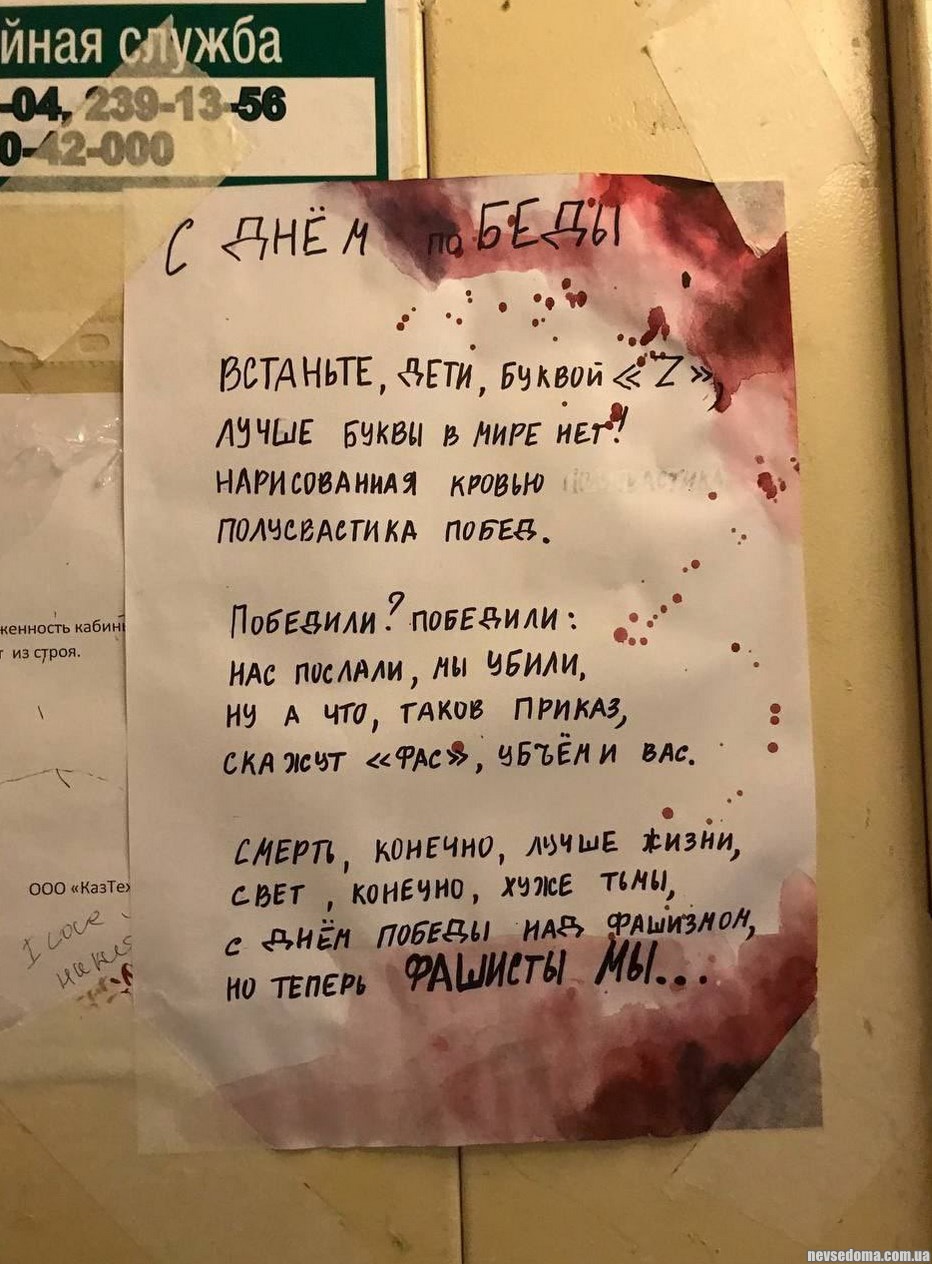 йная служба
-04, 239-13-56
0-42-000
С ДНЁМ поБЕДЫ
ВСТАНЬТЕ, ДЕТИ, БУКВОЙ «Z»,
ЛУЧШЕ БУКВЫ В МИРЕ НЕТ!
НАРИСОВАННАЯ КРОВЬЮ
ПОЛУСВАСТИКА ПОБЕД.
ПОБЕДИЛИ? ПОБЕДИЛИ:
НАС ПОСЛАЛИ, МЫ УБИЛИ,
НУ А ЧТО, ТАКОВ ПРИКАЗ,
СКАЖУТ «ФАС», УБЪЁМ И ВАС.
СМЕРТЬ, КОНЕЧНО, ЛУЧШЕ ЖИЗНИ,
СВЕТ, КОНЕЧНО, ХУЖЕ ТЬМЫ,
С ДНЁМ ПОБЕДЫ НАД ФАШИЗМОМ,
НО ТЕПЕРЬ ФАШИСТЫ МЫ...
женность кабин
т из строя.
ООО «КазТех
I Love
nevsedoma.com.ua